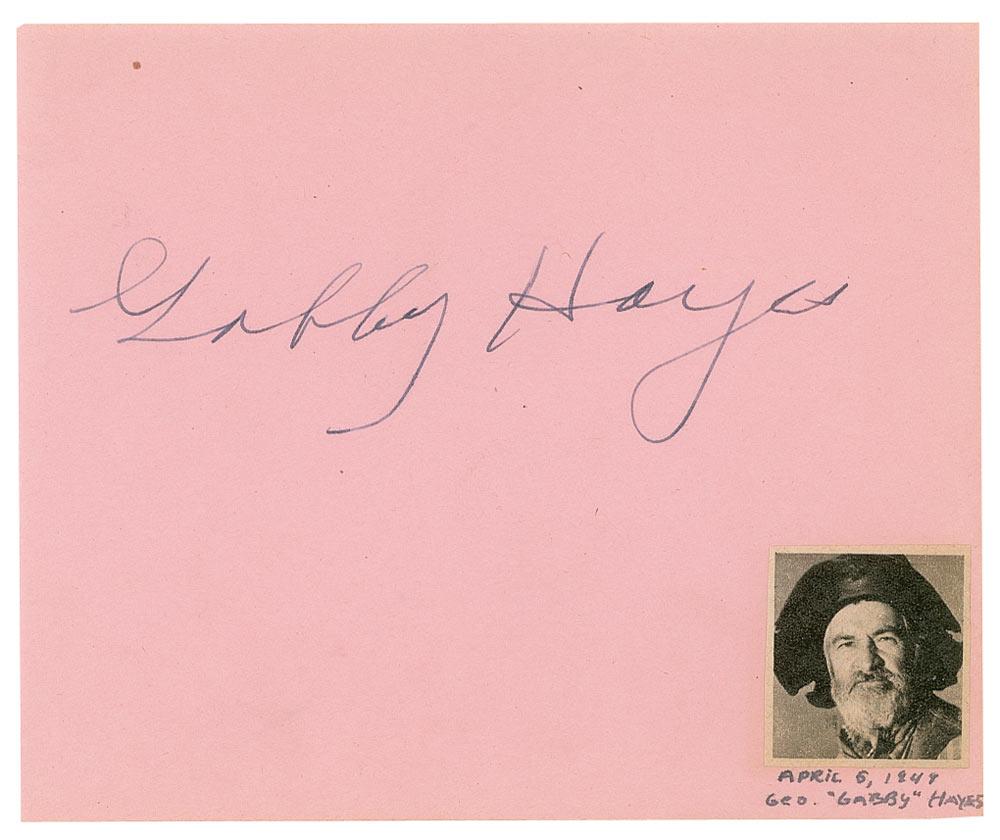 Gabby Hayes
APRIL 5, 1949
Geo. "GABBY" HAYES